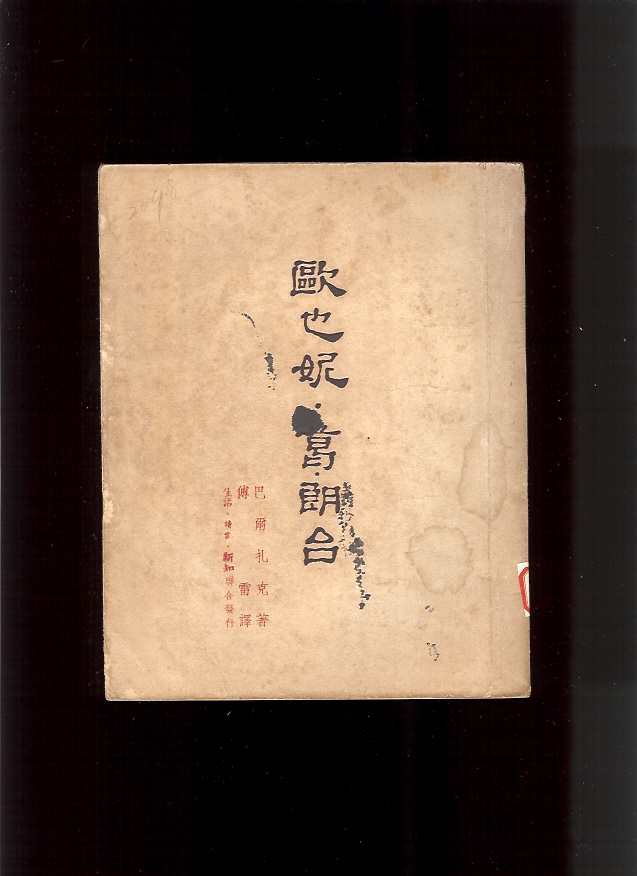 歐也妮·葛朗台
巴爾札克著
傅雷譯
生活·讀書·新知聯合發行